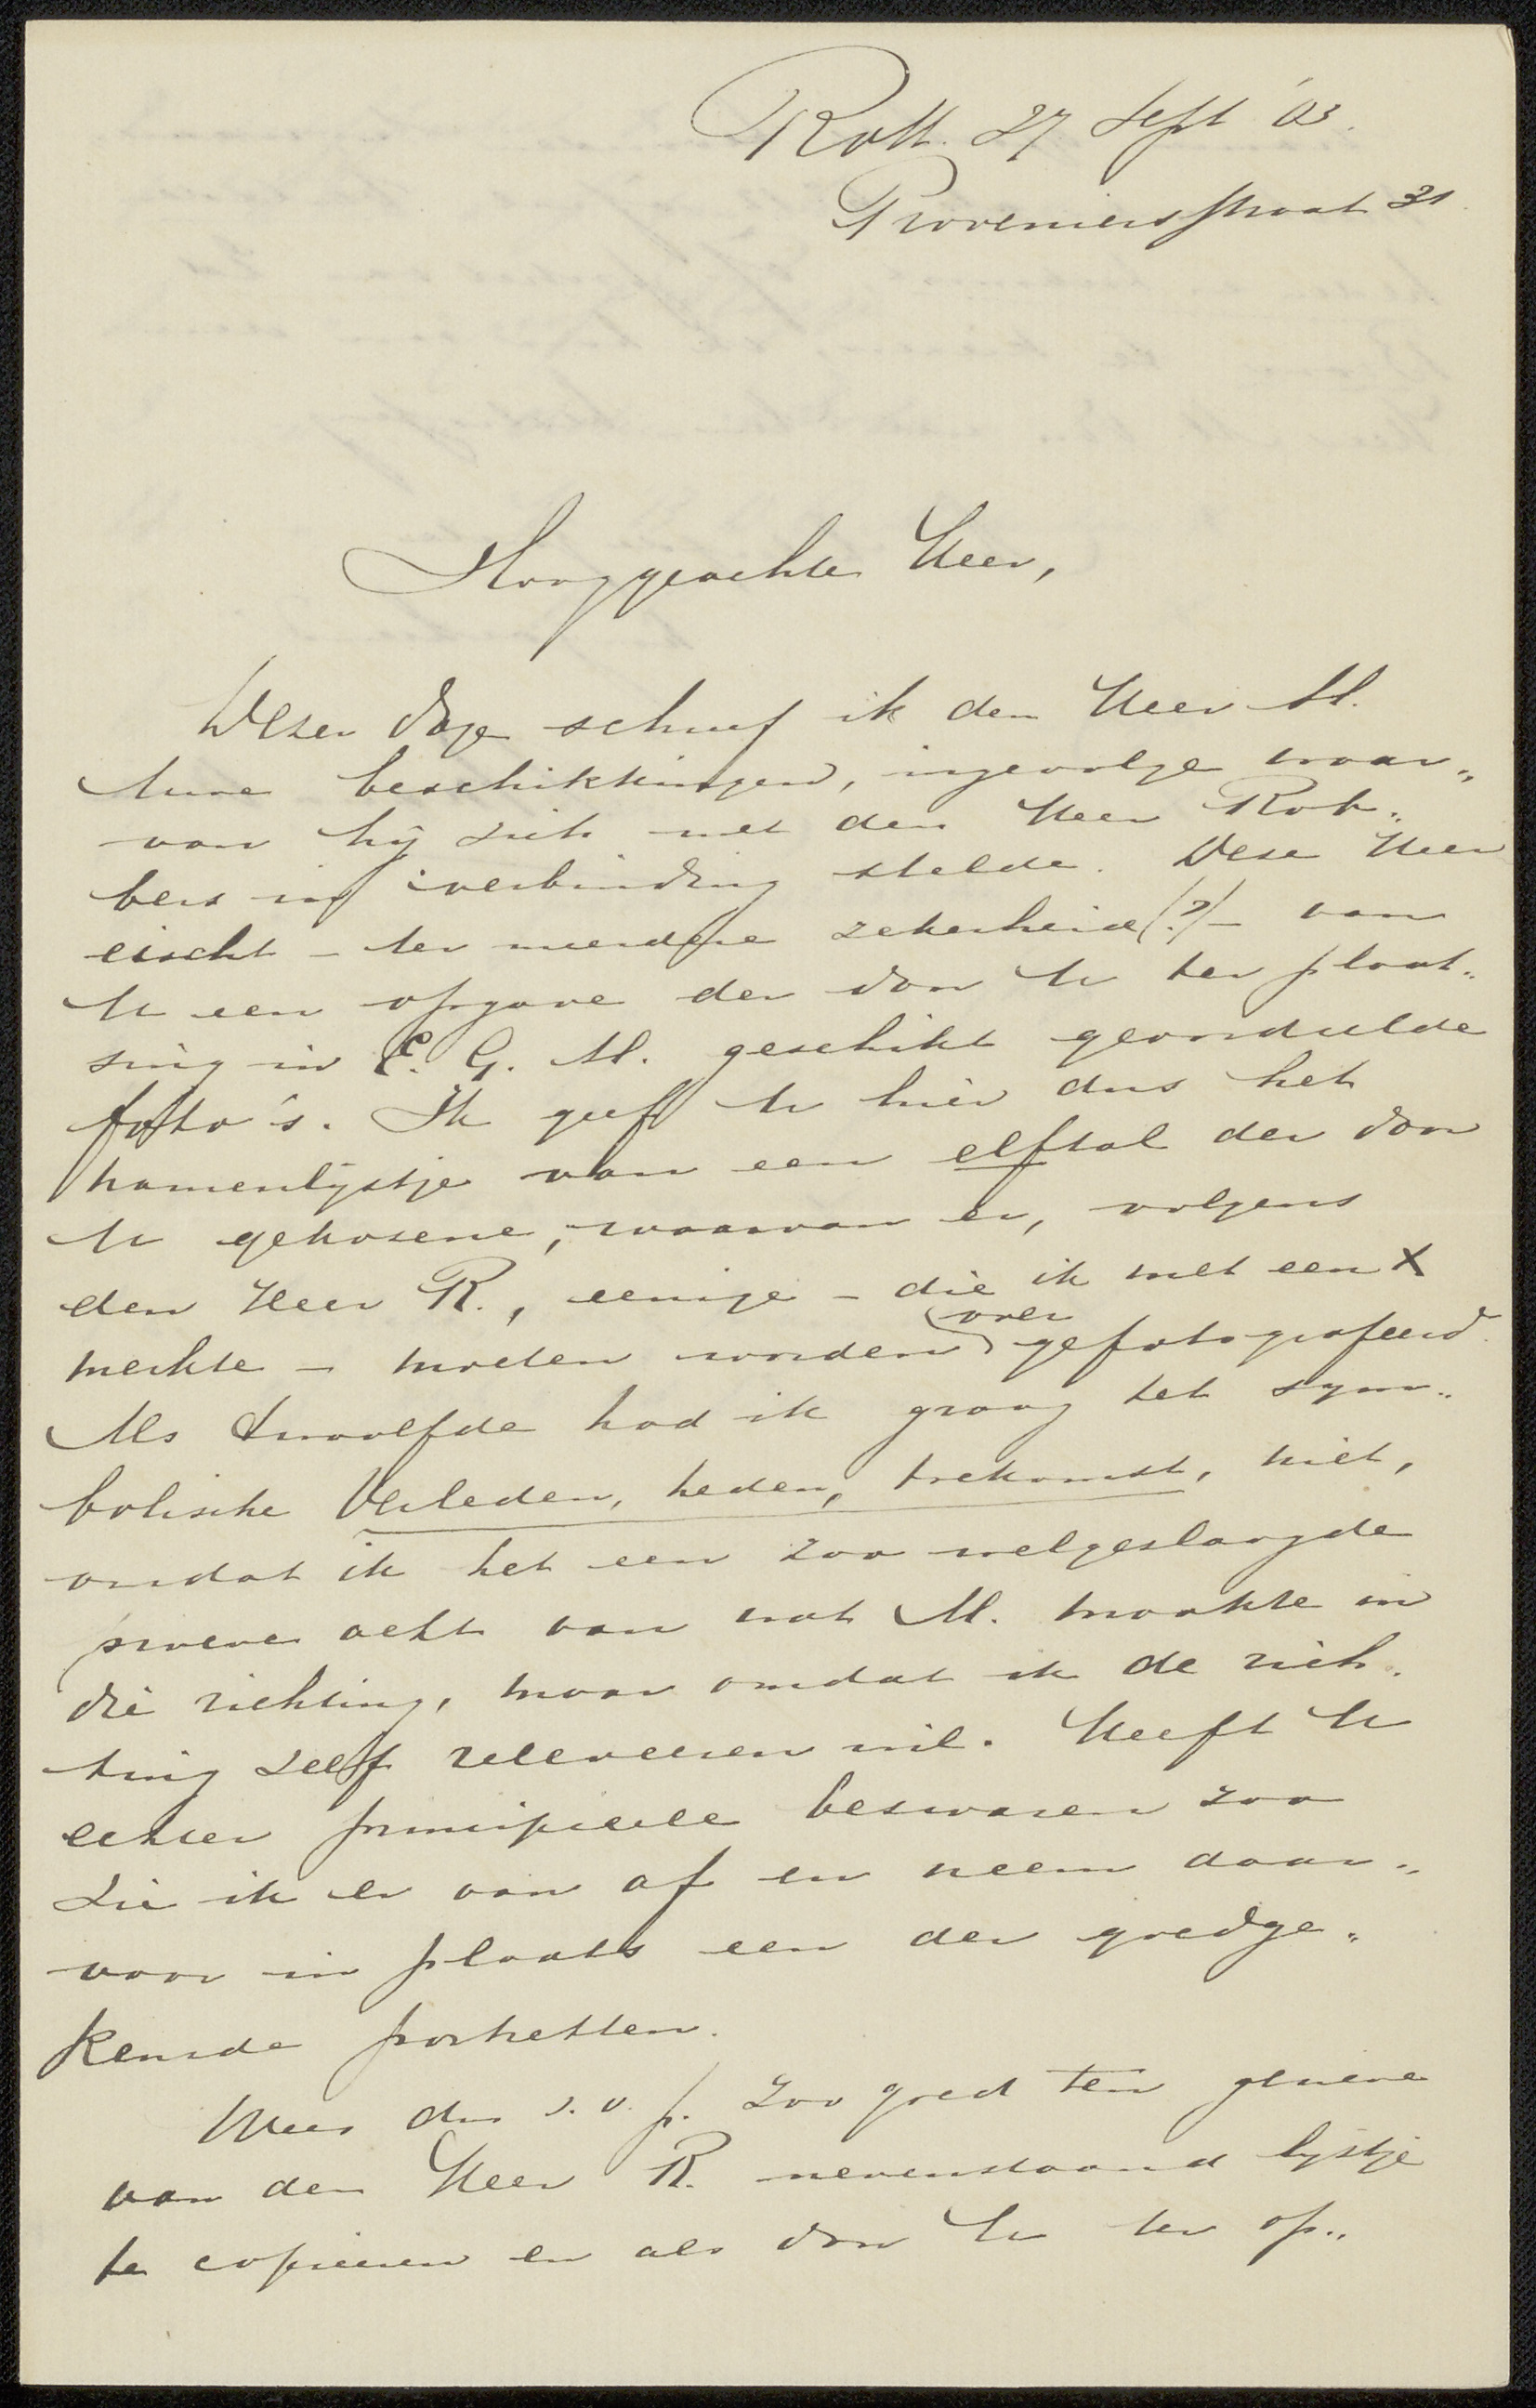 Rott. 27 Sept '03.
Proveniersstraat 31.
Hooggeachte Heer,
Dezer dage schreef ik den Heer M.
Uwe beschikkingen, ingevolge waar„
van hij zich met den Heer Rob„
bers in verbinding stelde. Deze Heer
eischt – ter meerdere zekerheid (?) – van
U een opgave der door U ter plaat„
sing in E. G. M. geschikt geoordeelde
foto's. Ik geef U hier dus het
namenlijstje van een elftal der door
U gekozene, waarvan er, volgens
den Heer R., eenige – die ik met een X
merkte – moeten worden over gefotografeerd.
Als twaalfde had ik graag het sym„
bolische Verleden, heden, toekomst, niet,
omdat ik het een zoo welgeslaagde
proeve acht van wat M. maakte in
die richting, maar omdat ik de rich„
ting zelf releveeren wil. Heeft U
echter principieele bezwaren zoo
zie ik er van af en neem daar„
voor in plaats een der goedge„
keurde portretten.
Wees dus s.v.p. zoo goed ten gerieve
van den Heer R. nevenstaand lijstje
te copieeren en als door U ter op„